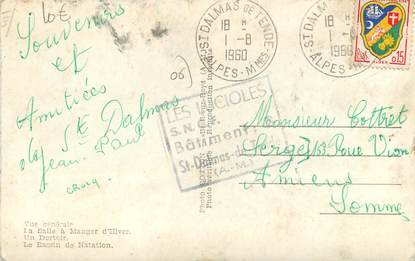 10€
Souvenirs
et
Amitiées
St Dalmas
Jean Paul
06
ST DALMAS DE TENDE
18 H
1-8
1960
ALPES-MMES
ST DALMAS
18 H
1-8
1960
ALPES-M
0,15
LES LUCIOLES
S.N.
Bâtiment
St-Dalmas-de
(A.-M.)
Monsieur Cottret
Serge 15 Roue Vion
Amiens
Somme
Vue générale
La Salle à Manger d'Hiver.
Un Dortoir.
Le Bassin de Natation.